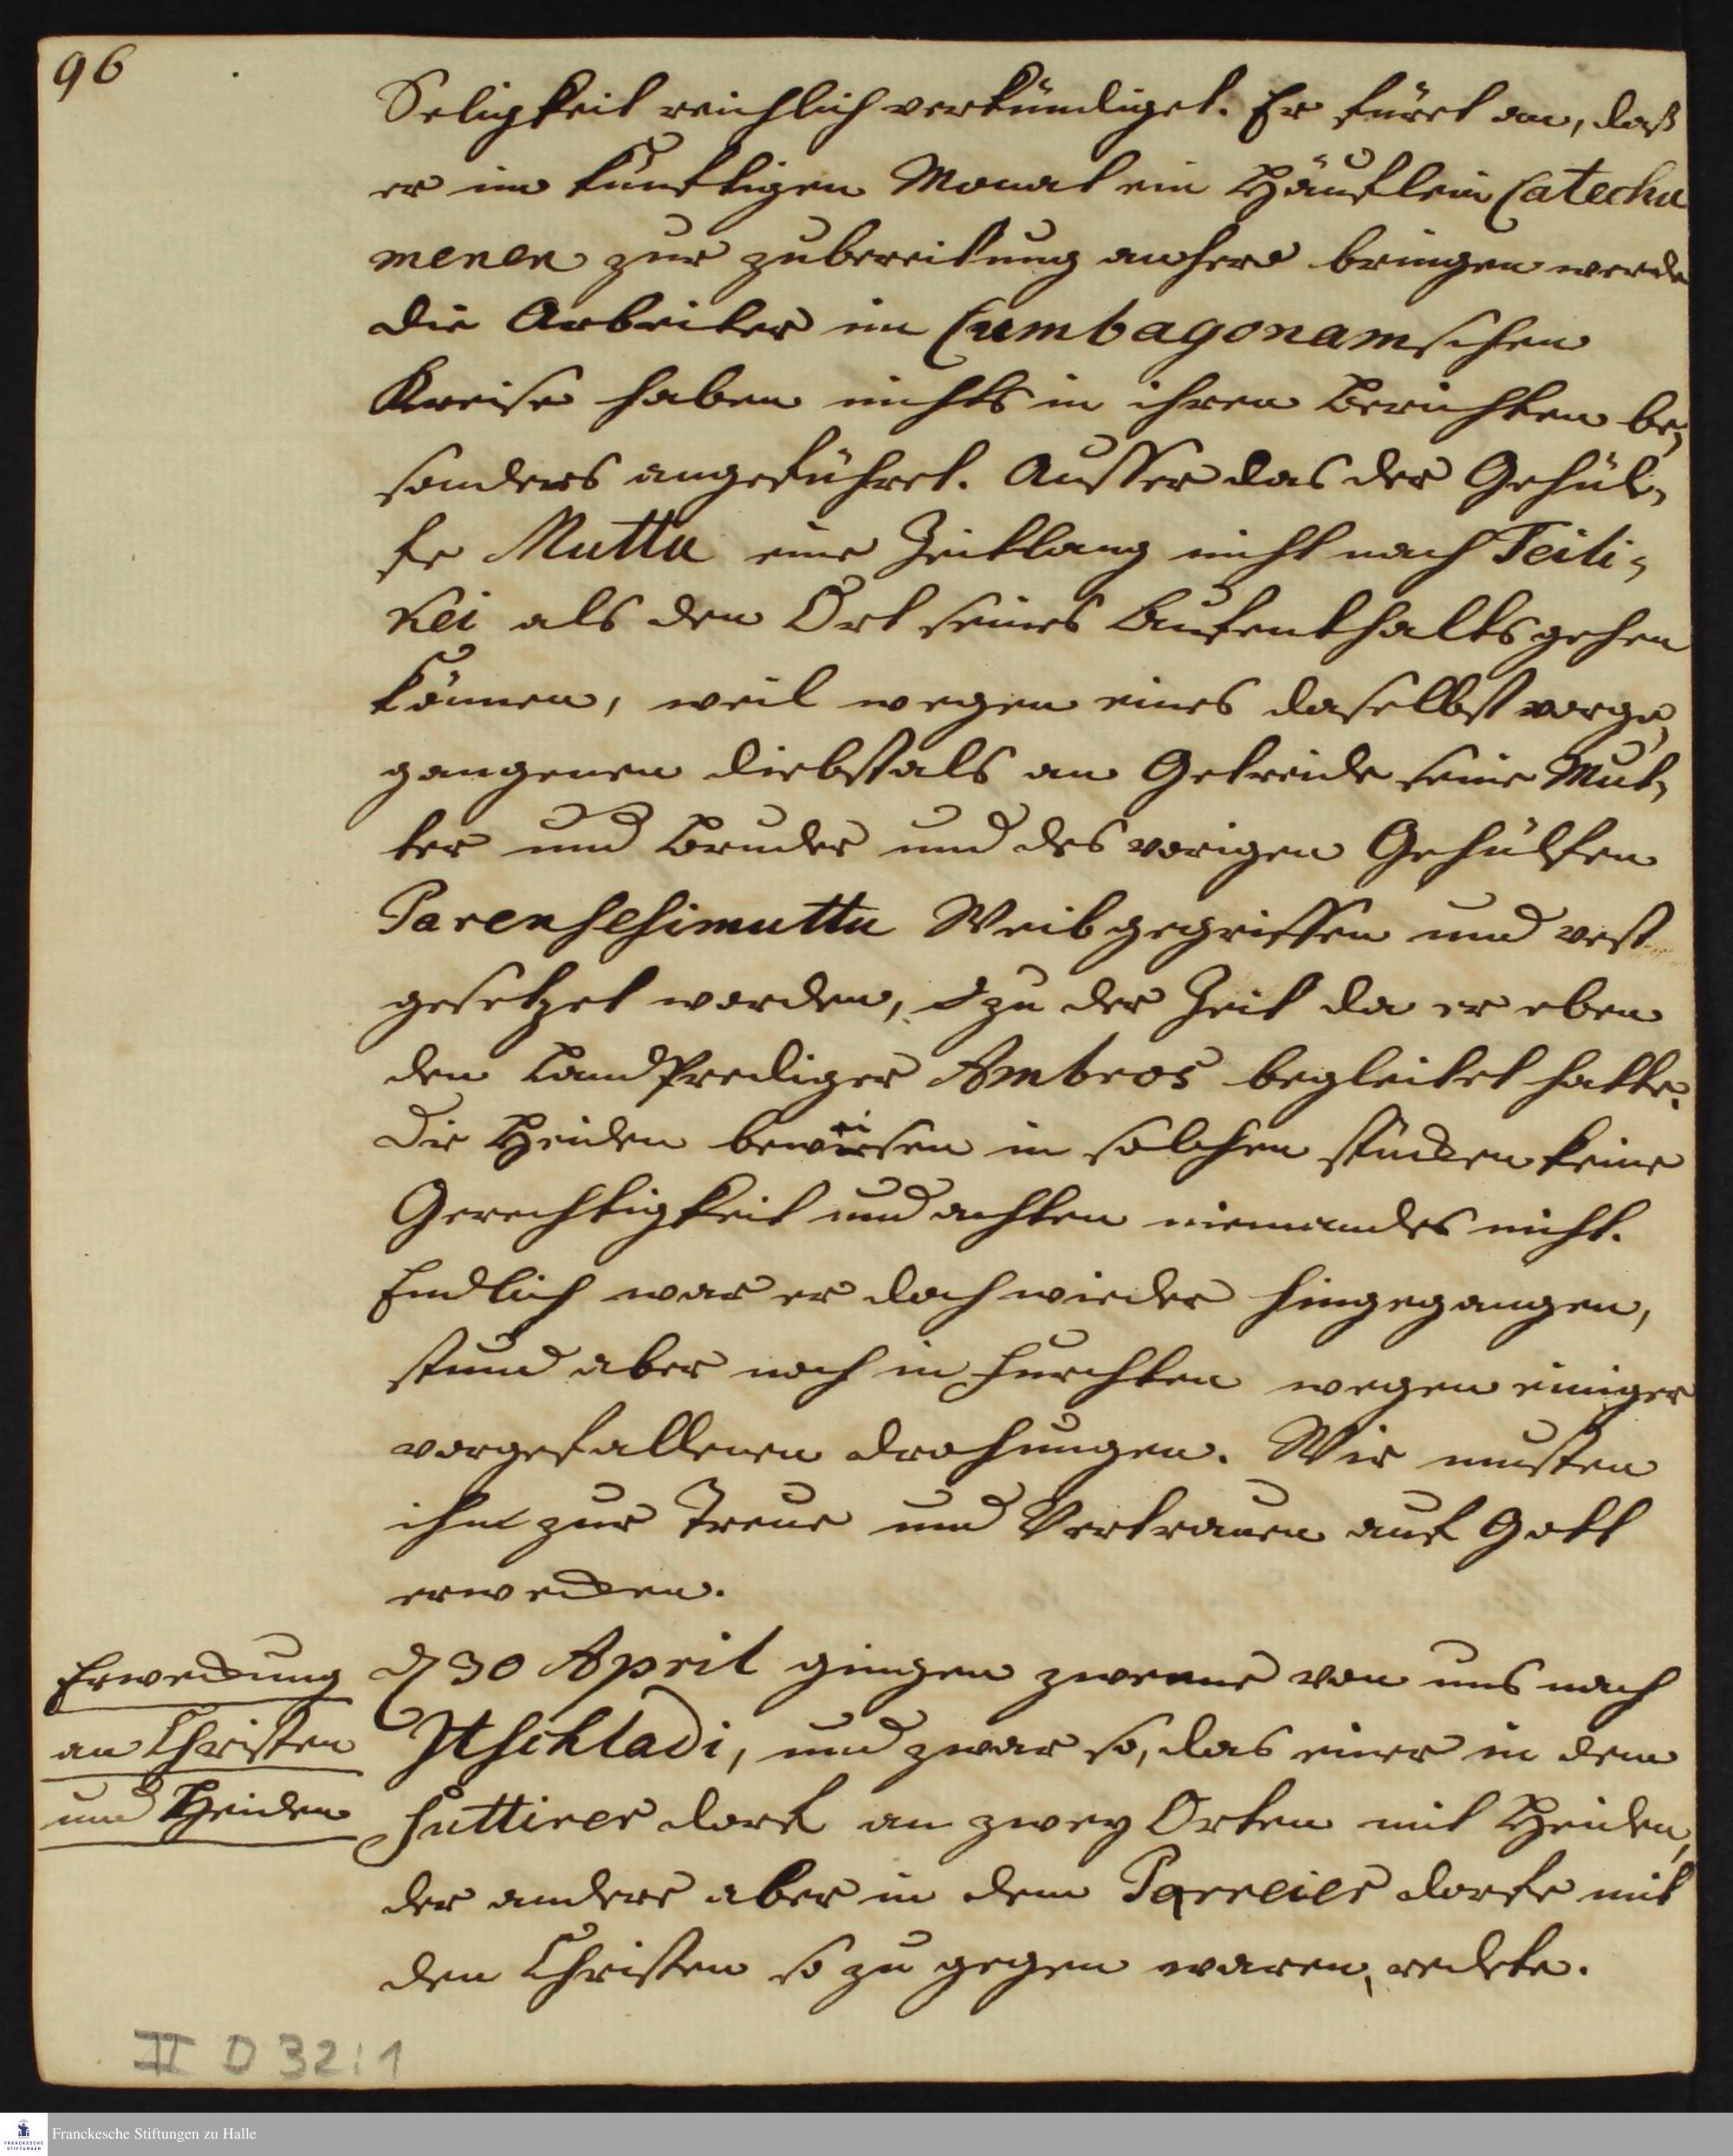 96
Seligkeit reichlich verkündiget. Er füret an, daß
er im künftigen Monat ein Häuflein Catechu
menen zur zubereitung anhero bringen werde
die Arbeiter im Cumbagonamschen
Kreise haben nichts in ihren Berichten be,
sonders angeführet. Ausser das der Gehül,
fe Muttu eine Zeitlang nicht nach Teili,
kei als den Ort seines Aufenthalts gehen
können, weil wegen eines daselbst vorge,
gangenen diebstals an Getreide seine Mut,
ter und Bruder und des vorigen Gehülfen
Parenschimuttu Weib gegriffen und vest
gesetzet worden, zu der Zeit da er eben
den LandPrediger Ambros begleitet hatte.
Die Heiden beweisen in solchen stücken keine
Gerechtigkeit und achten niemandes nicht.
Endlich war er doch wieder hingegangen,
stund aber noch in Furchten wegen einiger
vorgefallenen drohungen. Wir musten
ihn zur Treue und Vertrauen auf Gott
erwecken.
Erweckung
an Christen
und Heiden
d 30 April gingen zweene von uns nach
Itschladi, und zwar so, das einer in dem
Suttirer dorf an zwey Orten mit Heiden,
der andere aber in dem Parreier dorfe mit
den Christen so zu gegen waren, redete.
II D 32:1
Franckesche Stiftungen zu Halle